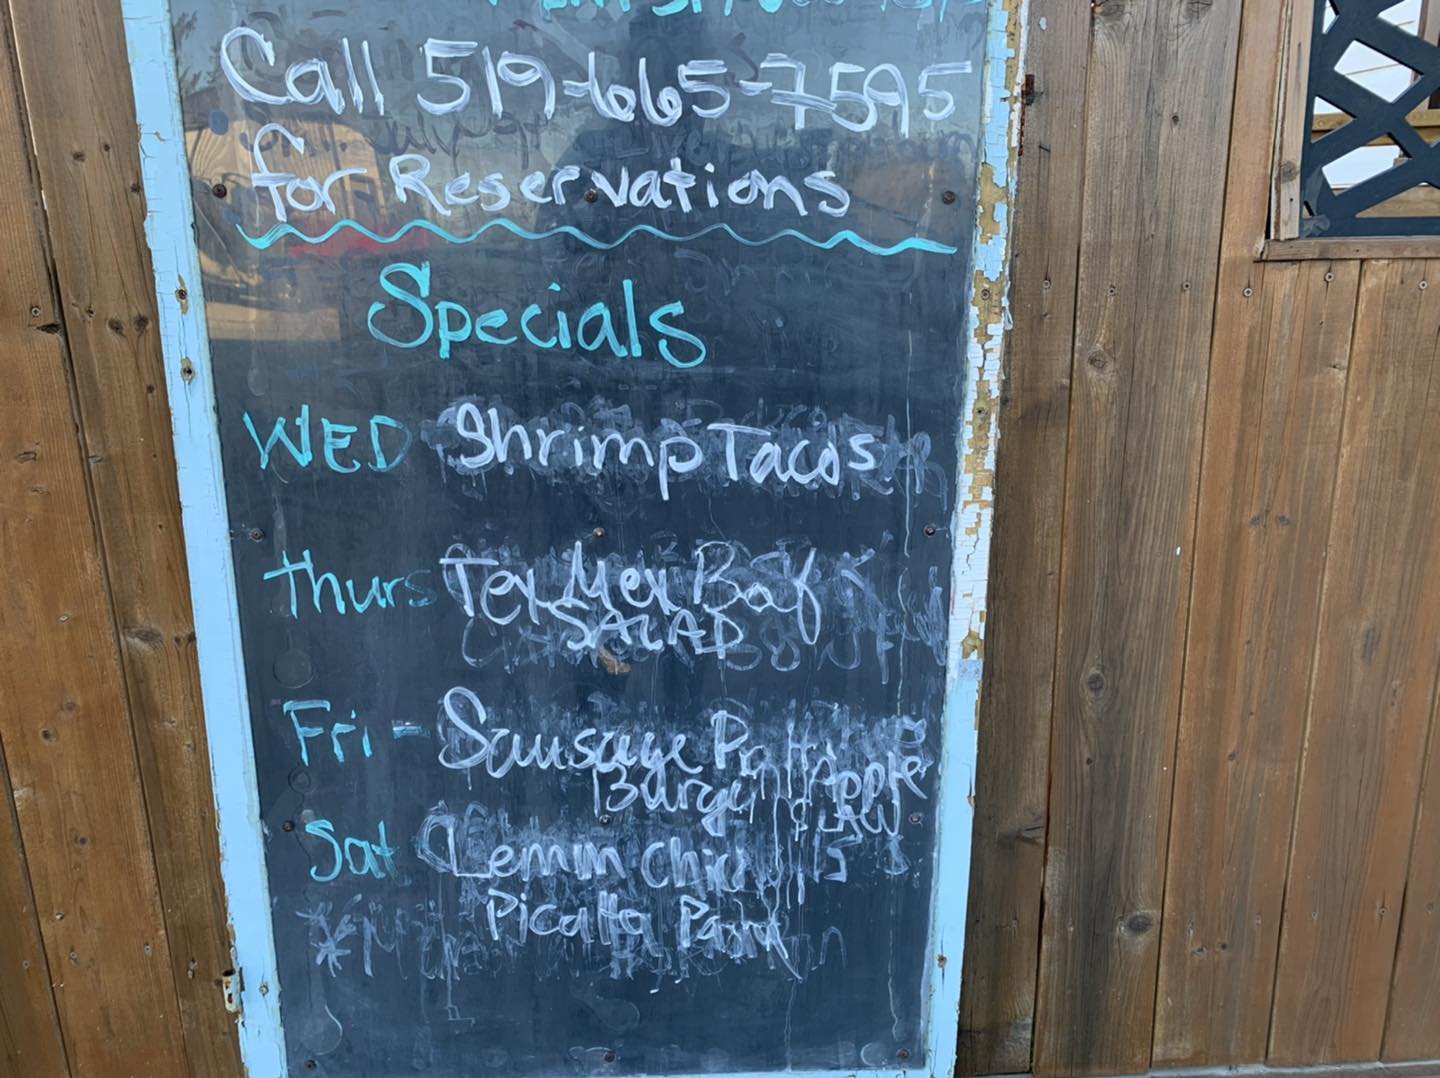 Call 519-665-7595
for Reservations
Specials
WED Shrimp Tacos
Thurs Tex Mex Beef
SALAD
Fri - Sausage Patty
Burger Apple
SLAW
Sat Lemon Chick
Picatta Pasta